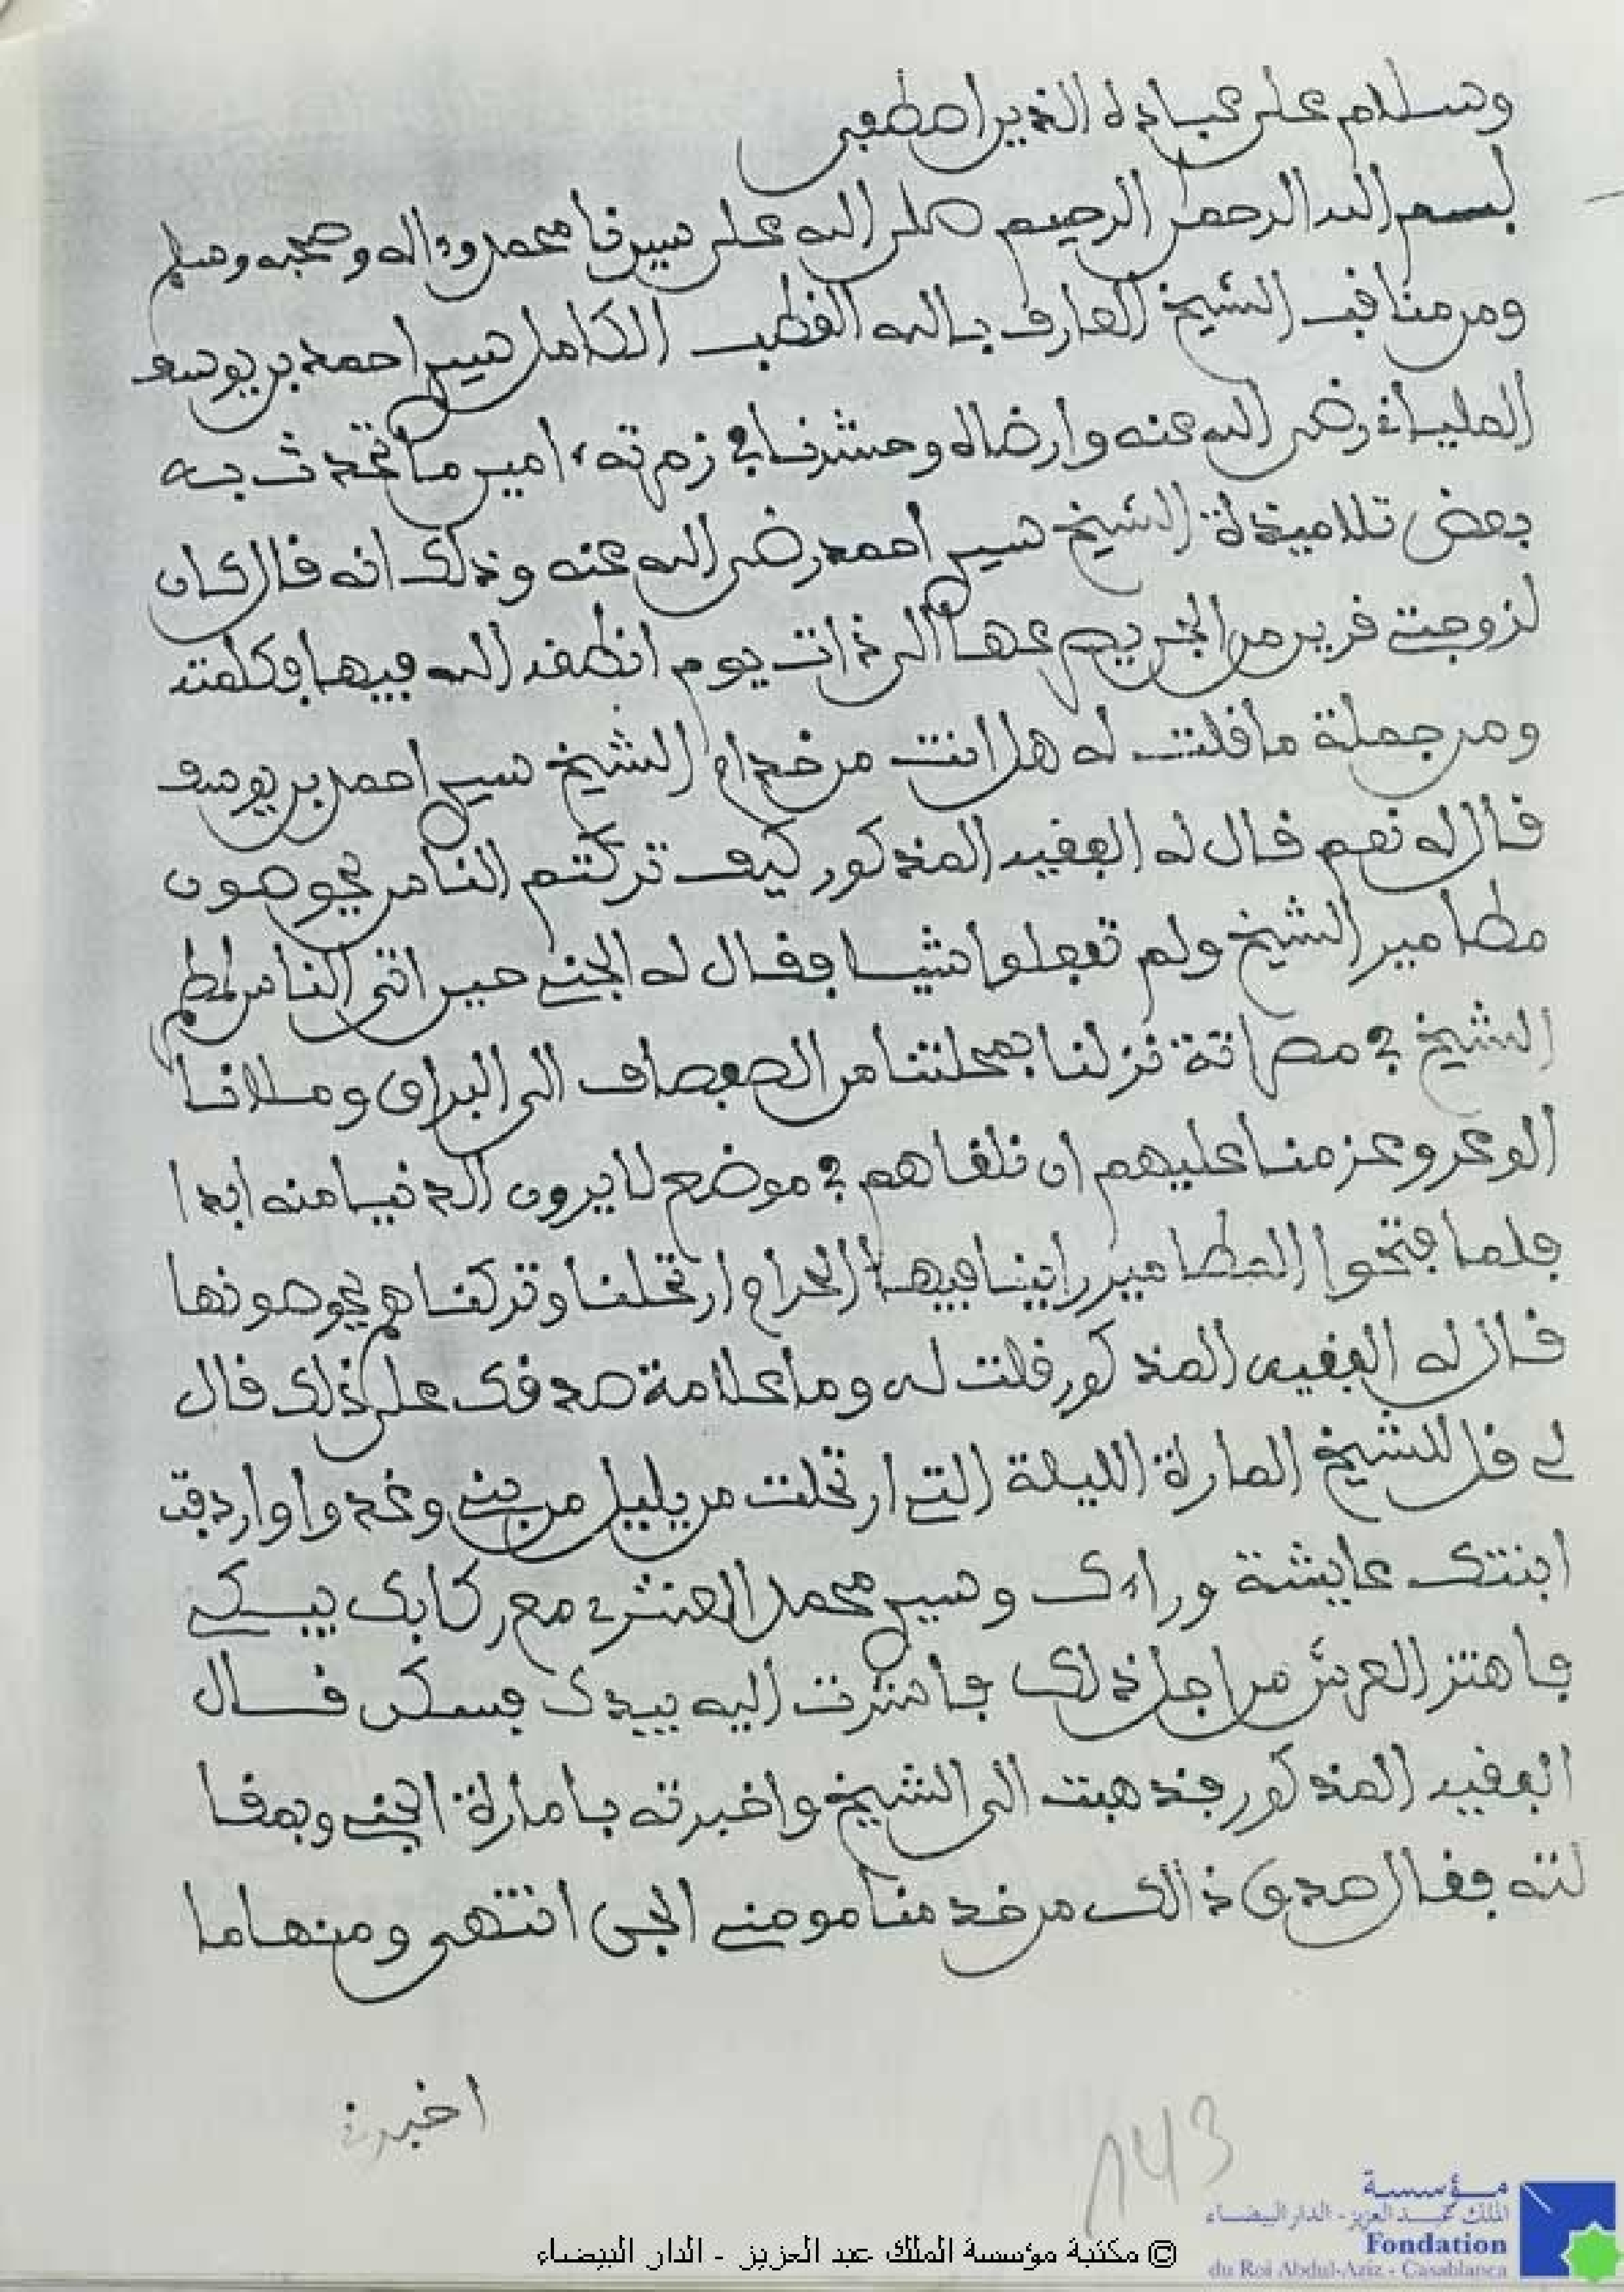 وسلام على عباده الذين اصطفى
بسم الله الرحمن الرحيم صلى الله على سيدنا محمد وءاله وصحبه وسلم
ومن مناقب الشيخ العارف بالله القطب الكامل سيدي احمد بن يوسف
الملياني رضي الله عنه وارضاه وحشرنا في زمرته ءامين ما تحدث به
بعض تلاميذة الشيخ سيدي احمد رضي الله عنه وذلك انه قال كان
لزوجتي قرين من الجن يصرعها الى ذات يوم انطقه الله فيها وكلمته
ومن جملة ما قلت له هل انت من خدام الشيخ سيدي احمد بن يوسف
قال له نعم قال له الفقيه المذكور كيف تركتم الناس يخوضون
مطامير الشيخ ولم تفعلوا شيا فقال له الجني حين اتى الناس لمطمر
الشيخ في مصراتة نزلنا بمحلتنا من الصفصاف الى البراق وملانا
الوعر وعزمنا عليهم ان نلقاهم في موضع لا يرون الدنيا منه ابدا
فلما فتحوا المطامير راينا فيها الحرام ارتحلنا وتركناهم يخوضونها
قال له الفقيه المذكور قلت له وما علامة صدقك على ذلك قال
لي قل للشيخ المارة الليلة التي ارتحلت من يليل من بني وغدوا واردفت
ابنتك عايشة وراءك وسيدي محمد العنتري مع ركابك يبكي
فاهتز العرش من اجل ذلك فاشرت اليه بيدك فسكن قال
الفقيه المذكور فذهبت الى الشيخ واخبرته بامارة الجني وبمقا
لته فقال صدق ذالك من خدمنا مومني الجن انتهى ومنها ما
اخبرني
143
مؤسسة
الملك عبد العزيز - الدار البيضاء
Fondation
du Roi Abdul-Aziz - Casablanca
© مكتبة مؤسسة الملك عبد العزيز - الدار البيضاء